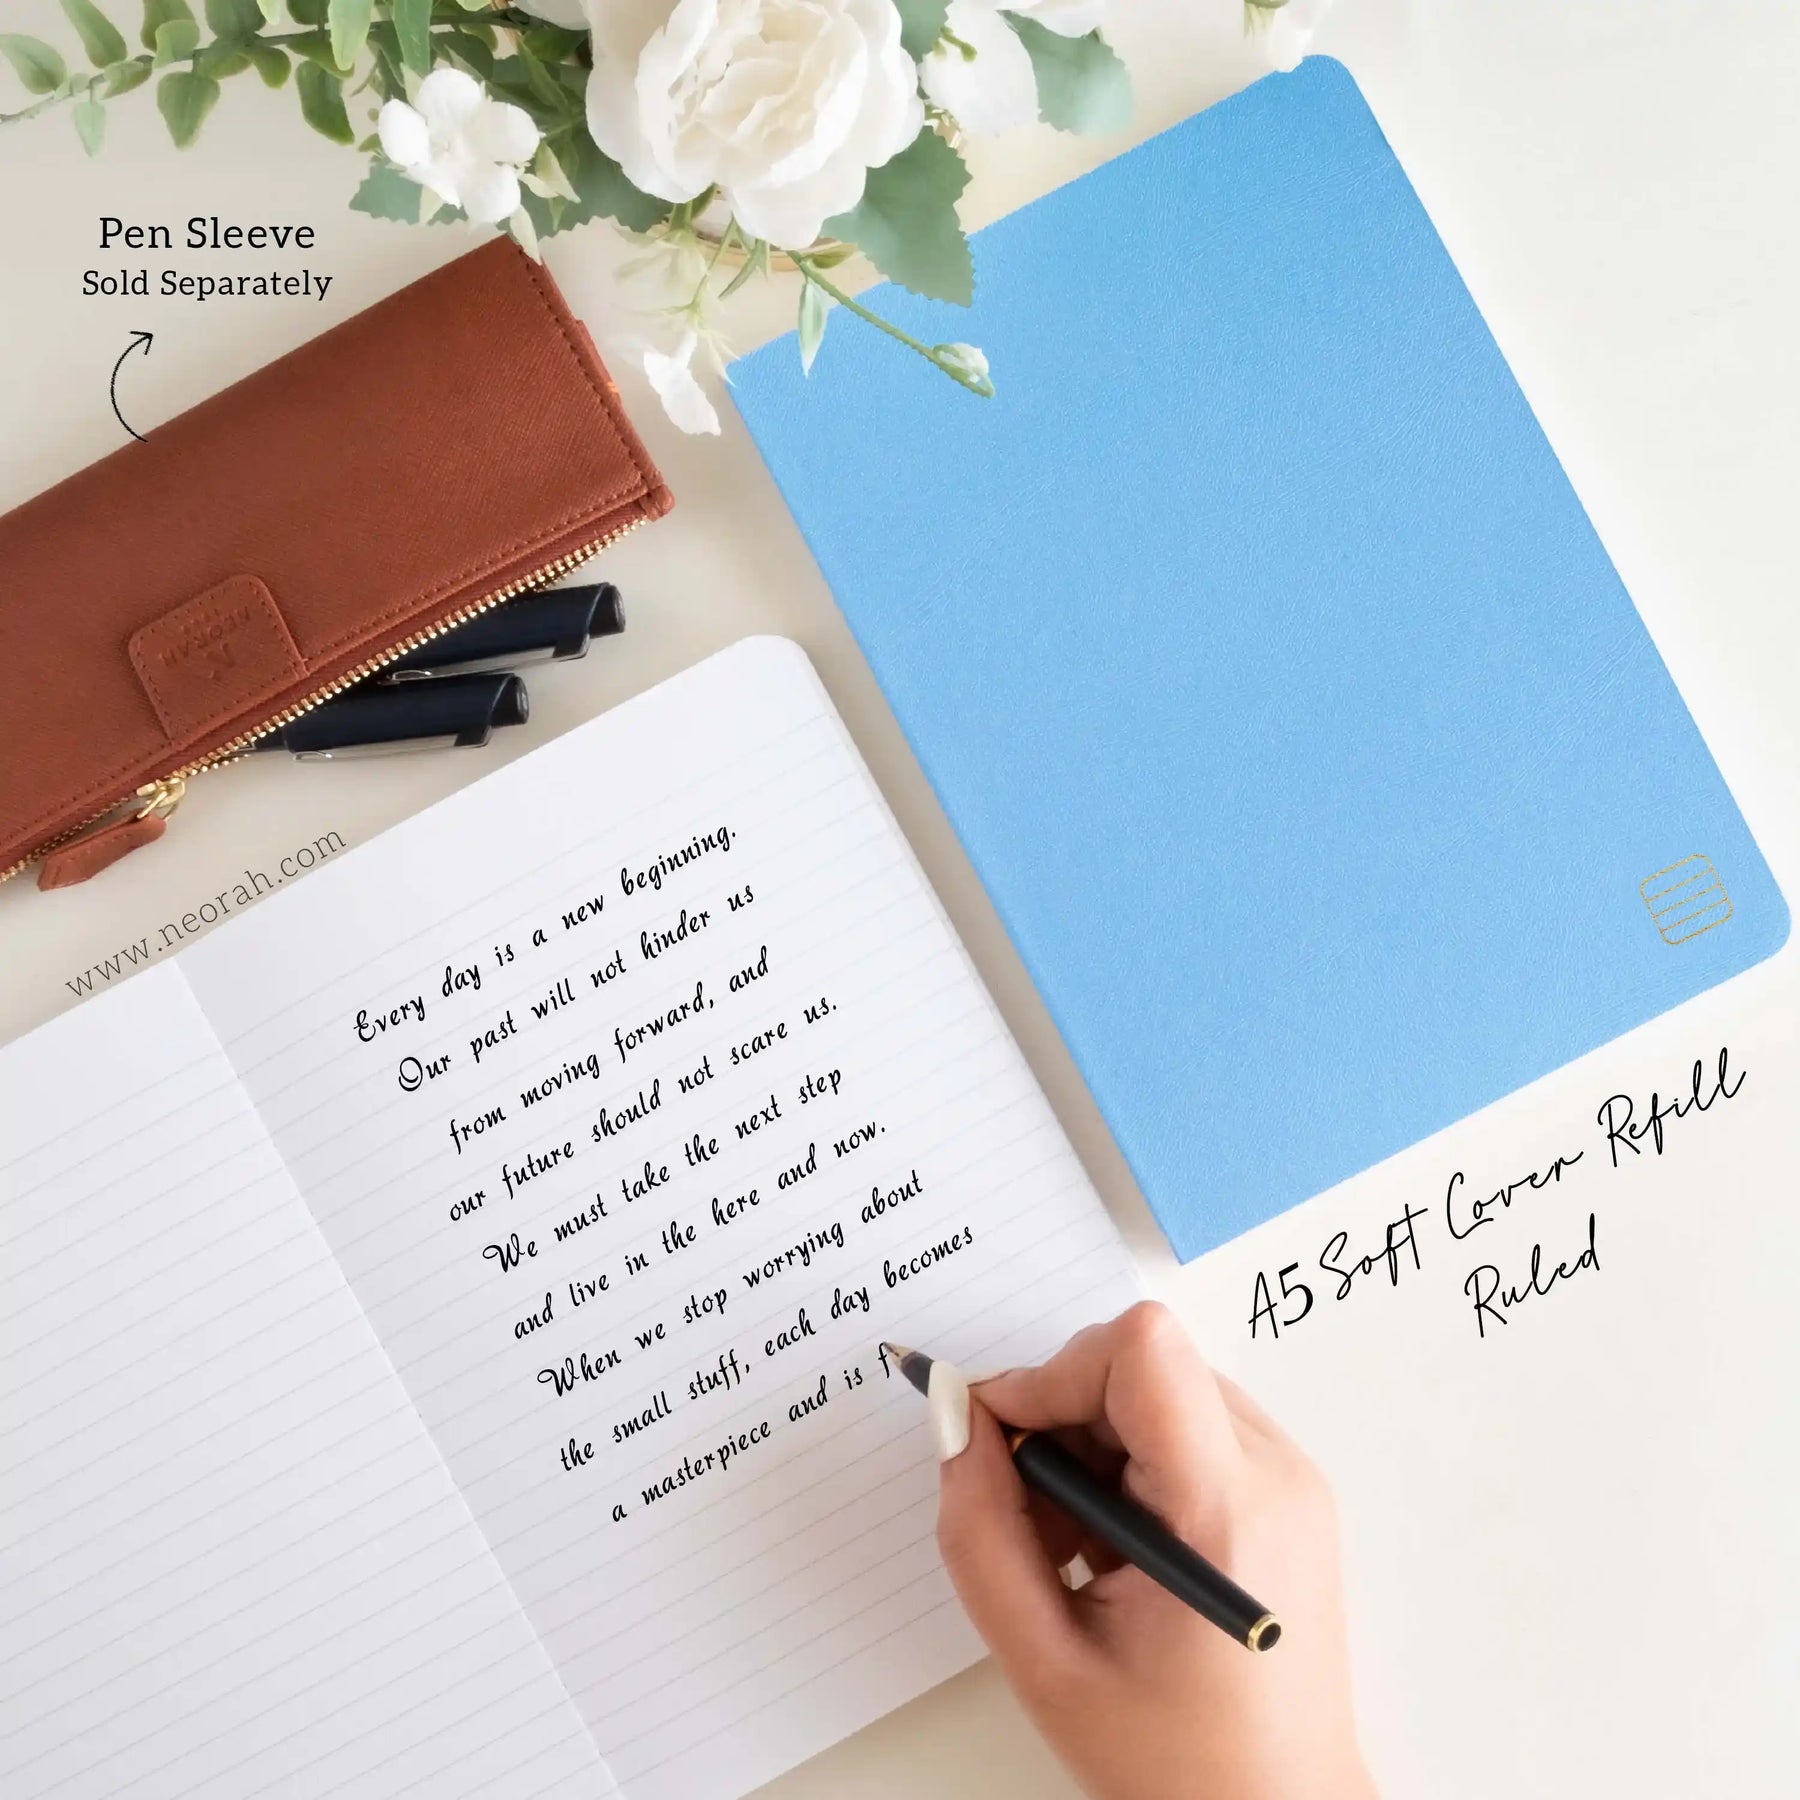 Pen Sleeve
Sold Separately
NEORAH
www.neorah.com
Every day is a new beginning.
Our past will not hinder us
from moving forward, and
our future should not scare us.
We must take the next step
and live in the here and now.
When we stop worrying about
the small stuff, each day becomes
a masterpiece and is f
A5 Soft Cover Refill
Ruled